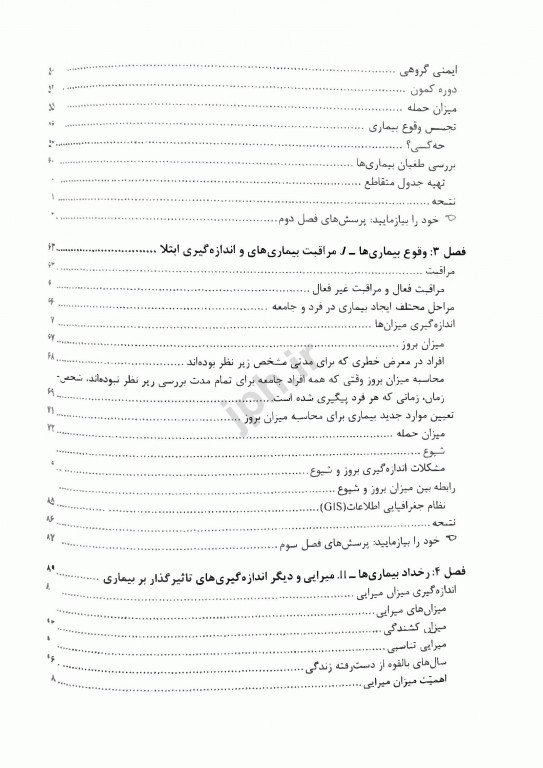 ایمنی گروهی
دوره کمون
میزان حمله
تجسس وقوع بیماری
چه‌کسی؟
بررسی طغیان بیماری‌ها ۶۰
تهیه جدول متقاطع
نتیجه
خود را بیازمایید: پرسش‌های فصل دوم
فصل ۳: وقوع بیماری‌ها ـ I. مراقبت بیماری‌های و اندازه‌گیری ابتلا ۶۳
مراقبت
مراقبت فعال و مراقبت غیر فعال
مراحل مختلف ایجاد بیماری در فرد و جامعه
اندازه‌گیری میزان‌ها
میزان بروز ۶۷
افراد در معرض خطری که برای مدتی مشخص زیر نظر بوده‌اند ۶۸
محاسبه میزان بروز وقتی که همه افراد جامعه برای تمام مدت بررسی زیر نظر نبوده‌اند، شخص-
زمان، زمانی که هر فرد پیگیری شده است ۶۹
تعیین موارد جدید بیماری برای محاسبه میزان بروز ۷۱
میزان حمله ۷۲
شیوع
مشکلات اندازه‌گیری بروز و شیوع
رابطه بین میزان بروز و شیوع
نظام جغرافیایی اطلاعات(GIS) ۸۵
نتیجه ۸۶
خود را بیازمایید: پرسش‌های فصل سوم ۸۷
فصل ۴: رخداد بیماری‌ها ـ II. میرایی و دیگر اندازه‌گیری‌های تاثیرگذار بر بیماری ۸۹
اندازه‌گیری میزان میرایی
میزان‌های میرایی
میزان کشندگی
میرایی تناسبی
سال‌های بالقوه از دست‌رفته زندگی ۹۶
اهمیّت میزان میرایی
jph.ir